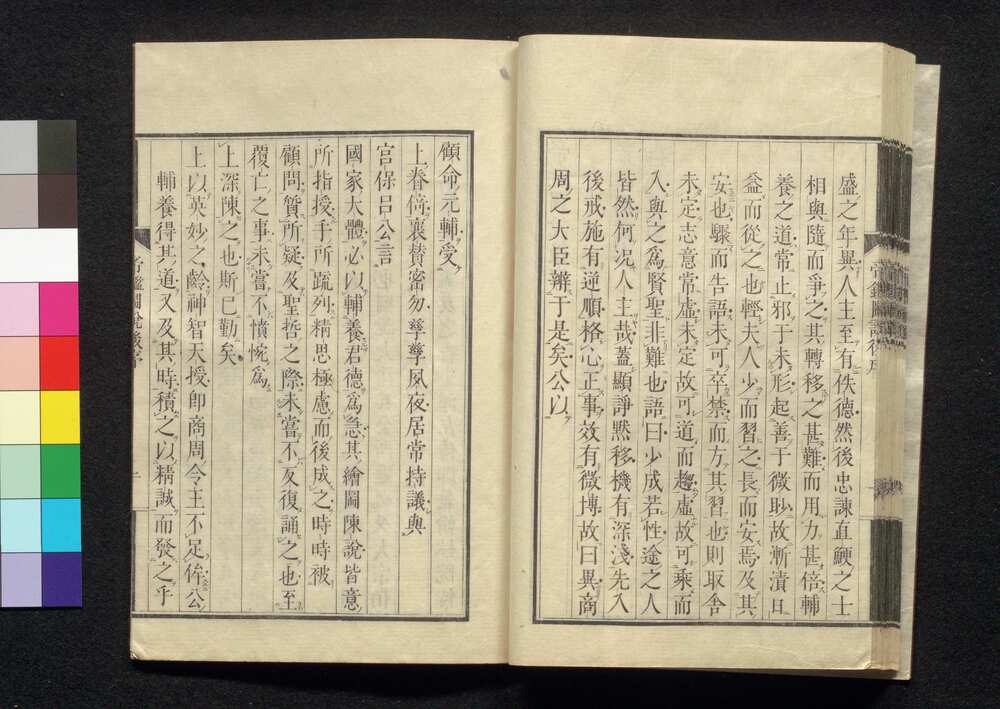 盛之年異人主至有佚德然後忠諫直鯁之士
相與隨而爭之其轉移之甚難而用力甚倍輔
養之道常止邪于未形起善于微眇故漸漬日
益而從之也輕夫人少而習之長而安焉及其
安也驟而告語未可卒禁而方其習也則取舍
未定志意常虛未定故可道而趨虛故可乘而
入與之爲賢聖非難也語曰少成若性途之人
皆然何況人主哉蓋顯諍黙移機有深淺先入
後戒施有逆順格心正事效有微博故曰異商
周之大臣辨于是矣公以
顧命元輔受
上眷倚襄贊密勿孳孳夙夜居常持議與
宮保呂公言
國家大體必以輔養君德爲急其繪圖陳說皆意
所指授手所疏列精思極慮而後成之時時被
顧問質所疑及聖哲之際未嘗不反復誦之也至
覆亡之事未嘗不憤惋爲
上深陳之也斯已勤矣
上以英妙之齡神智天授卽商周令主不足侔公
輔養得其道又及其時積之以精誠而發之乎